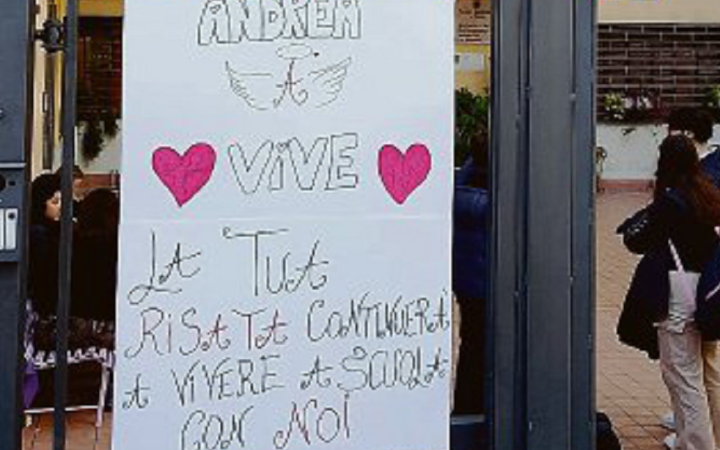 ANDREA
A
VIVE
LA TUA
RISATA CONTINUERÀ
A VIVERE A SCUOLA
CON NOI